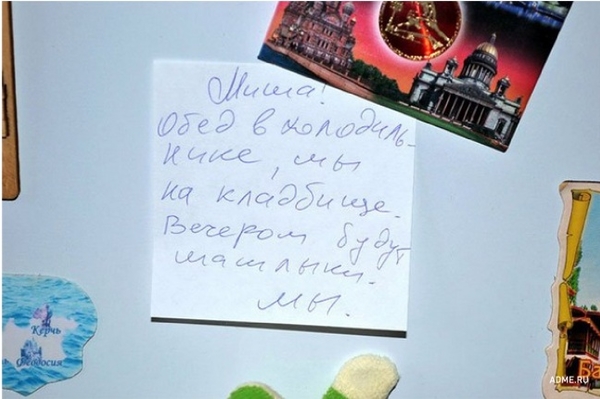 Миша!
Обед в холодиль-
нике, мы
на кладбище.
Вечером будут
шашлыки.
Мы.
Керчь
Феодосия
Ва
ADME.RU